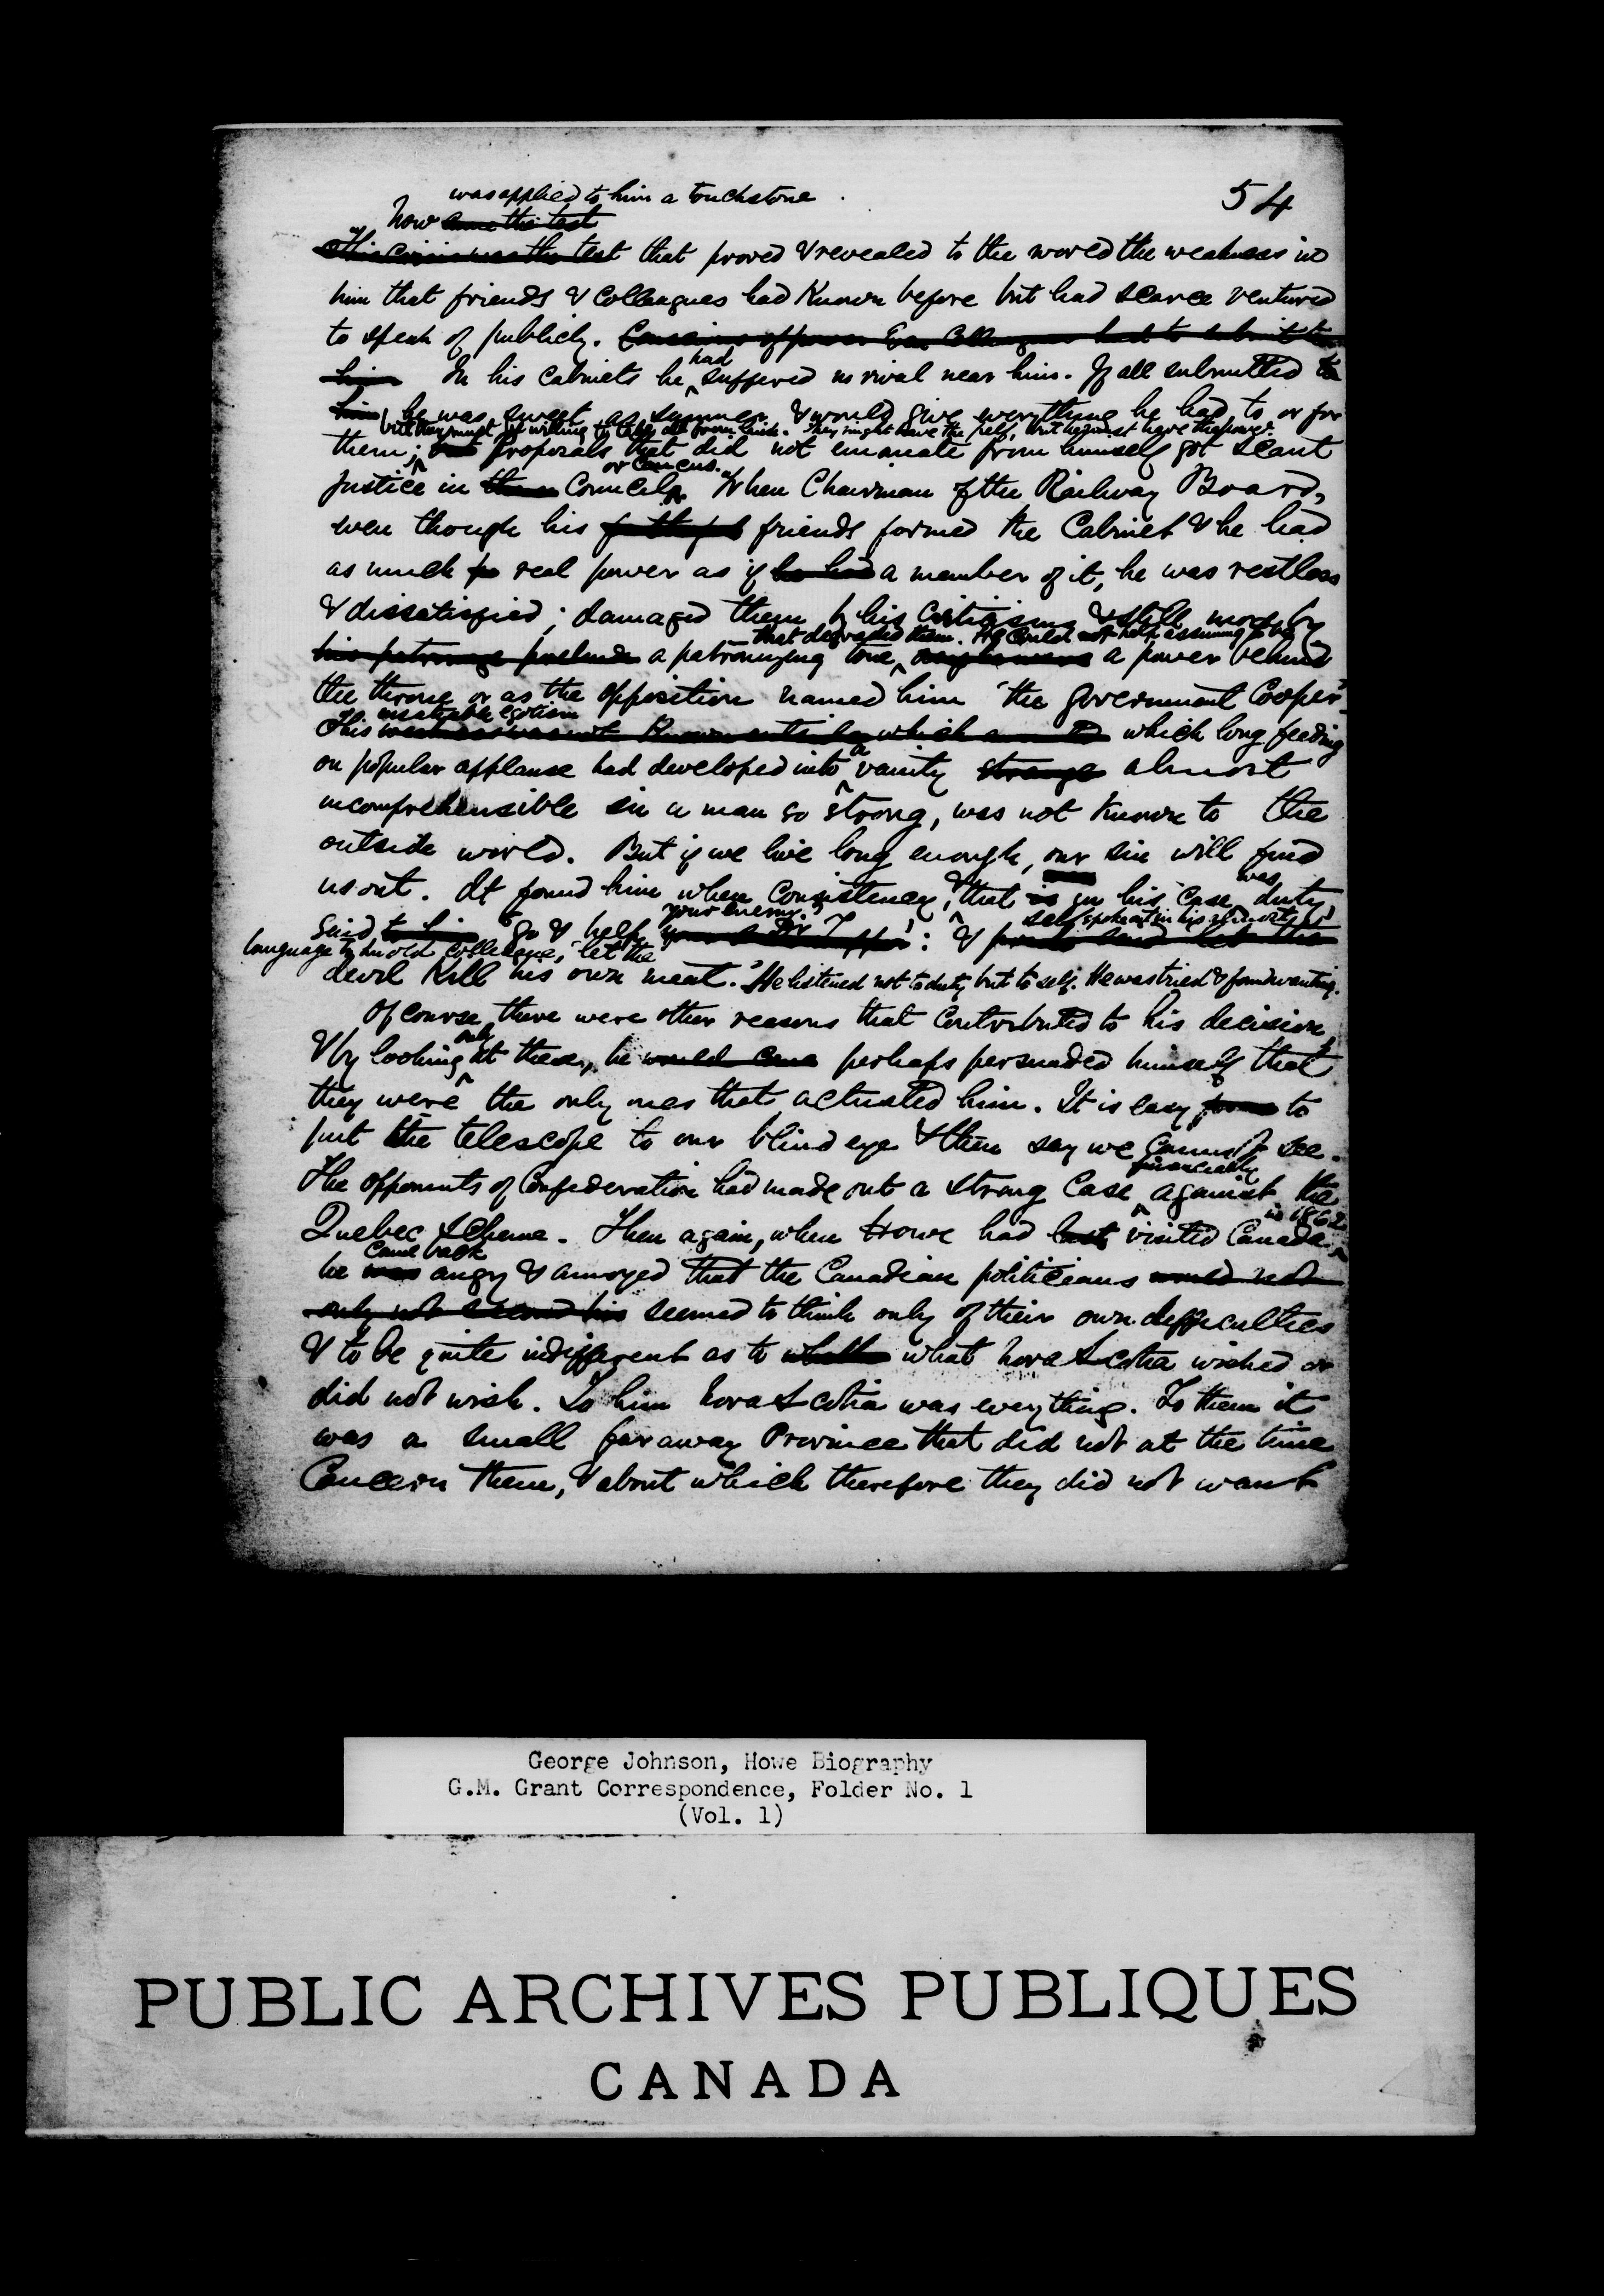 54
was applied to him a touchstone
Now came the test
This crisis was the test that proved & revealed to the world the weakness in
him that friends & colleagues had known before but had scarce ventured
to speak of publicly. Conscious of power Even Colleagues had to submit to
him In his Cabinets he had suffered no rival near him. If all submitted to
him, he was sweet as summer & would give everything he had to or for
but they must be willing to take all from him. They might have the pelf, but he must have the power.
them; but proposals that did not emanate from himself got scant
or Caucus.
justice in Council. When Chairman of the Railway Board,
even though his friends formed the Cabinet & he had
as much real power as if he had a member of it, he was restless
& dissatisfied; damaged them by his criticisms & still more by
that degraded them. He could not help assuming to be
his patronage a patronizing tone, a power behind
the throne or as the opposition named him 'the government Cooper'.
insatiable egotism
This weakness was not known outside which which long feeding
on popular applause had developed into a vanity strange almost
incomprehensible in a man so strong, was not known to the
outside world. But if we live long enough, our sin will find
us out. It found him when Consistency, & that is in his case was duty,
your enemy.' self spoke out in his
said to him 'Go & help : &
language to an old colleague, 'let the
devil kill his own meat.' He listened not to duty but to self. He was tried & found wanting.
Of course, there were other reasons that contributed to his decision,
& by looking only at these, he would come perhaps persuaded himself that
they were the only ones that actuated him. It is easy to
put the telescope to our blind eye & then say we cannot see.
The opponents of Confederation had made out a strong case financially against the
Quebec Scheme. Then again, when Howe had last visited Canada in 1862
he was came back angry & annoyed that the Canadian politicians would not
only not second his seemed to think only of their own difficulties
& to be quite indifferent as to whether what Nova Scotia wished or
did not wish. To him Nova Scotia was everything. To them it
was a small far away Province that did not at the time
Concern them, & about which therefore they did not want
George Johnson, Howe Biography
G.M. Grant Correspondence, Folder No. 1
(Vol. 1)
PUBLIC ARCHIVES PUBLIQUES
CANADA